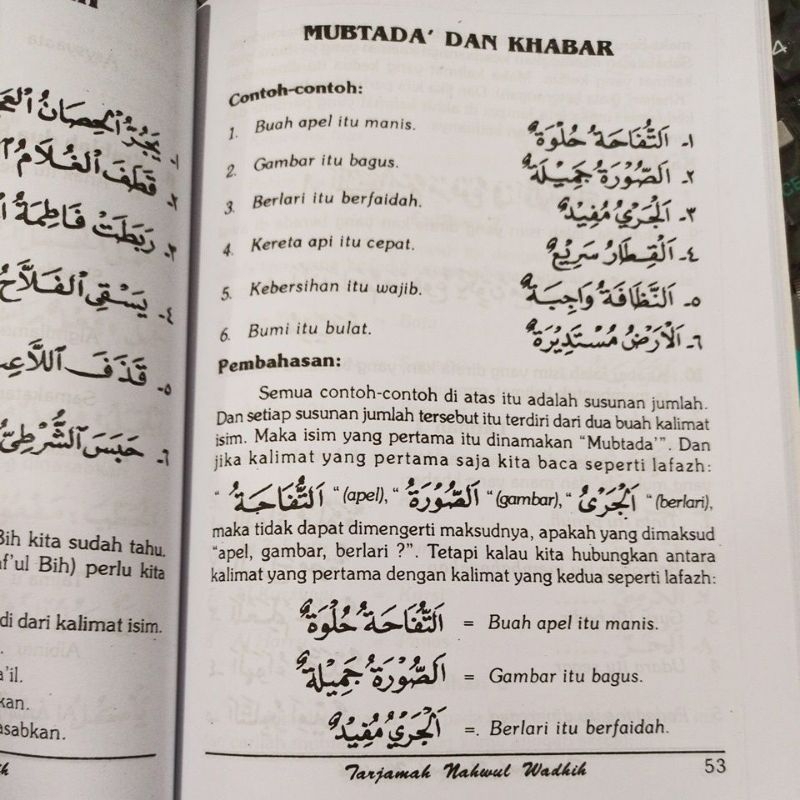 يَجُرُّ الْحِصَانُ
٢- قَطَفَ الْغُلَامُ
٣- رَبَطَتْ فَاطِمَةُ
٤- يَسْقِى الْفَلَّاحُ
٥- قَذَفَ
٦- حَبَسَ الشُّرْطِىُّ
Bih kita sudah tahu.
af'ul Bih) perlu kita
di dari kalimat isim.
a'il.
kan.
asabkan.
MUBTADA' DAN KHABAR
Contoh-contoh:
1. Buah apel itu manis. ١- اَلتُّفَّاحَةُ حُلْوَةٌ
2. Gambar itu bagus. ٢- اَلصُّوْرَةُ جَمِيْلَةٌ
3. Berlari itu berfaidah. ٣- اَلْجَرْيُ مُفِيْدٌ
4. Kereta api itu cepat. ٤- اَلْقِطَارُ سَرِيْعٌ
5. Kebersihan itu wajib. ٥- اَلنَّظَافَةُ وَاجِبَةٌ
6. Bumi itu bulat. ٦- اَلْاَرْضُ مُسْتَدِيْرَةٌ
Pembahasan:
Semua contoh-contoh di atas itu adalah susunan jumlah.
Dan setiap susunan jumlah tersebut itu terdiri dari dua buah kalimat
isim. Maka isim yang pertama itu dinamakan "Mubtada'". Dan
jika kalimat yang pertama saja kita baca seperti lafazh:
" اَلتُّفَّاحَةُ " (apel), " اَلصُّوْرَةُ " (gambar), " اَلْجَرْىُ " (berlari),
maka tidak dapat dimengerti maksudnya, apakah yang dimaksud
"apel, gambar, berlari ?". Tetapi kalau kita hubungkan antara
kalimat yang pertama dengan kalimat yang kedua seperti lafazh:
اَلتُّفَّاحَةُ حُلْوَةٌ = Buah apel itu manis.
اَلصُّوْرَةُ جَمِيْلَةٌ = Gambar itu bagus.
اَلْجَرْيُ مُفِيْدٌ =. Berlari itu berfaidah.
Tarjamah Nahwul Wadhih 53